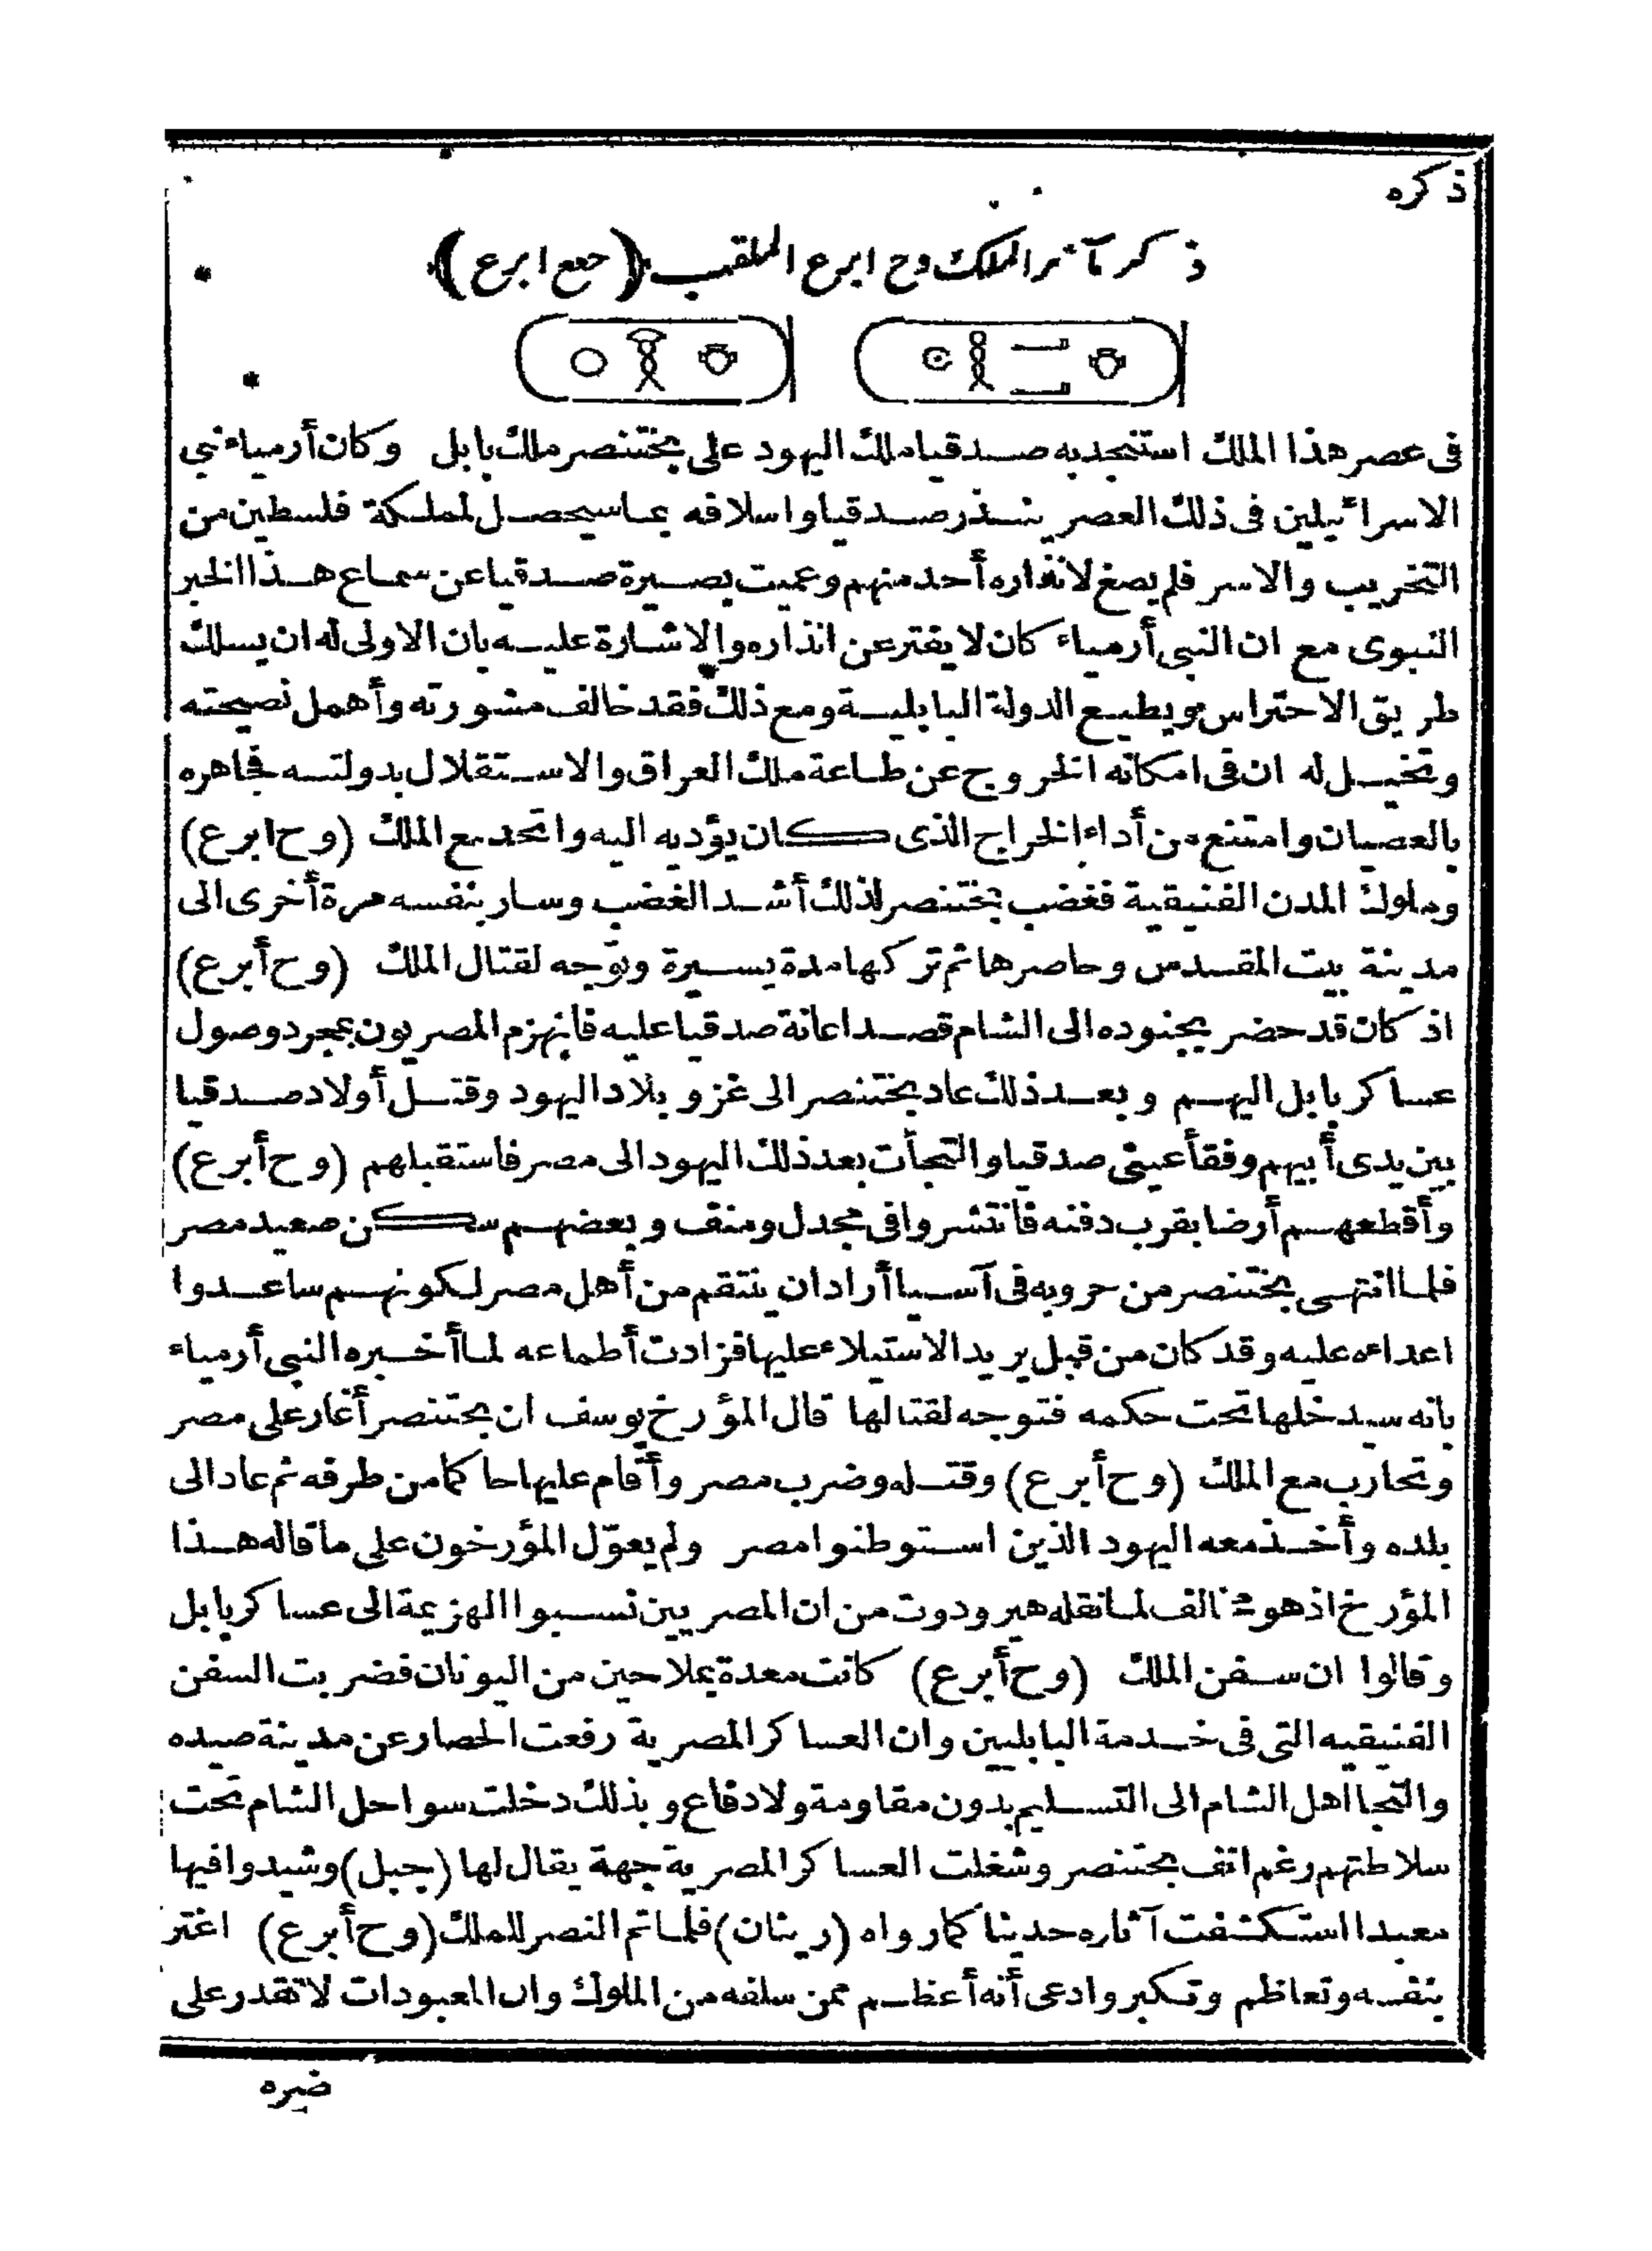 ذكره
ذكر مآثر الملك وح ابرع الملقب (حعع ابرع)
فى عصر هذا الملك استنجد به صدقيا ملك اليهود على بختنصر ملك بابل وكان أرمياء نبي
الاسرائيلين فى ذلك العصر ينذر صدقيا واسلافه بما سيحصل لمملكة فلسطين من
التخريب والاسر فلم يصغ لانذاره أحد منهم وعميت بصيرة صدقيا عن سماع هذا الخبر
النبوى مع ان النبى أرمياء كان لا يفتر عن انذاره والاشارة عليه بان الاولى له ان يسلك
طريق الاحتراس ويطيع الدولة البابلية ومع ذلك فقد خالف مشورته وأهمل نصيحته
وتخيل له ان فى امكانه الخروج عن طاعة ملك العراق والاستقلال بدولته فجاهره
بالعصيان وامتنع من أداء الخراج الذى كان يؤديه اليه واتحد مع الملك (وح ابرع)
وملوك المدن الفنيقية فغضب بختنصر لذلك أشد الغضب وسار بنفسه مرة أخرى الى
مدينة بيت المقدس وحاصرها ثم تركها مدة يسيرة وتوجه لقتال الملك (وح أبرع)
اذ كان قد حضر بجنوده الى الشام قصد اعانة صدقيا عليه فانهزم المصريون بمجرد وصول
عساكر بابل اليهم وبعد ذلك عاد بختنصر الى غزو بلاد اليهود وقتل أولاد صدقيا
بين يدى أبيهم وفقأ عينى صدقيا والتجأت بعد ذلك اليهود الى مصر فاستقبلهم (وح أبرع)
وأقطعهم أرضا بقرب دفنه فانتشروا فى مجدل ومنف وبعضهم سكن صعيد مصر
فلما انتهى بختنصر من حروبه فى آسيا أراد ان ينتقم من أهل مصر لكونهم ساعدوا
اعداءه عليه وقد كان من قبل يريد الاستيلاء عليها فزادت أطماعه لما أخبره النبى أرمياء
بانه سيدخلها تحت حكمه فتوجه لقتالها قال المؤرخ يوسف ان بختنصر أغار على مصر
وتحارب مع الملك (وح أبرع) وقتله وضرب مصر وأقام عليها حاكما من طرفه ثم عاد الى
بلده وأخذ معه اليهود الذين استوطنوا مصر ولم يعوّل المؤرخون على ما قاله هذا
المؤرخ اذ هو مخالف لما نقله هيرودوت من ان المصريين نسبوا الهزيمة الى عساكر بابل
وقالوا ان سفن الملك (وح أبرع) كانت معدة بملاحين من اليونان فضربت السفن
الفنيقيه التى فى خدمة البابليين وان العساكر المصرية رفعت الحصار عن مدينة صيده
والتجا اهل الشام الى التسليم بدون مقاومة ولا دفاع وبذلك دخلت سواحل الشام تحت
سلاطتهم رغم انف بختنصر وشغلت العساكر المصرية جهة يقال لها (جبل) وشيدوا فيها
معبدا استكشفت آثاره حديثا كما رواه (رينان) فلما تم النصر للملك (وح أبرع) اغتر
بنفسه وتعاظم وتكبر وادعى أنه أعظم ممن سلفه من الملوك وان المعبودات لا تقدر على
ضيره